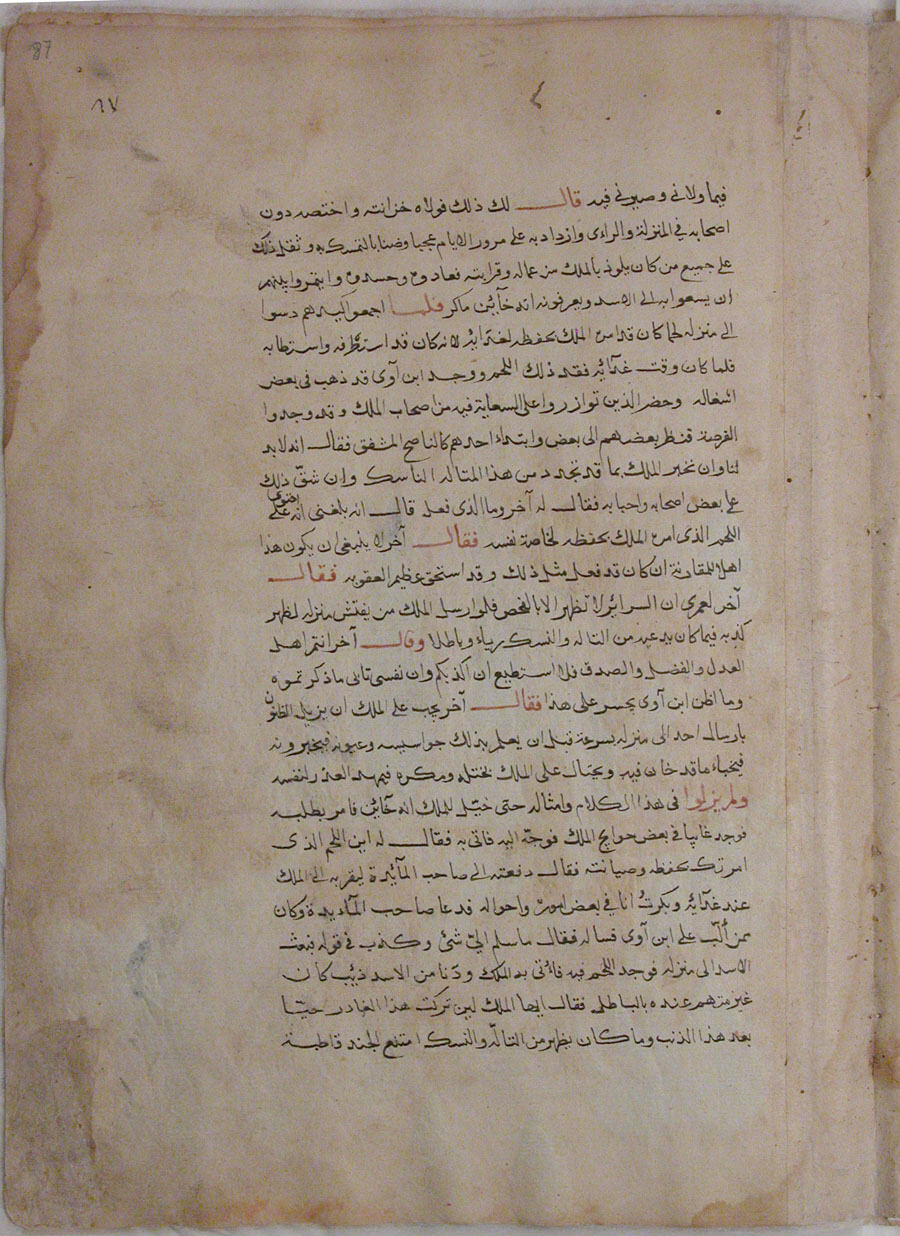 87
٨٧
فيما ولاني وصيرني فيه قال لك ذلك فولاه خزانته واختصه دون
اصحابه في المنزلة والراءى وازداد به على مرور الايام عجبا وضنا بالتمسك به وثقل ذلك
على جميع من كان يلوذ بالملك من عماله وقرابته فعادوه وحسدوه وايتمروا بينهم
ان يسعوا به الى الاسد ويعرفونه انه خآئن ماكر فلما اجمعوا كيدهم دسوا
الى منزله لحما كان قد امر الملك بحفظه لغدآئه لانه كان قد استظرفه واستطابه
فلما كان وقت غدآئه فقد ذلك اللحم ووجد ابن آوى قد ذهب في بعض
اشغاله وحضر الذين توازروا على السعاية فيه من اصحاب الملك وقد وجدوا
الفرصة فنظر بعضهم الى بعض وابتداء احدهم كالناصح المشفق فقال انه لا بد
لنا وان نخبر الملك بما قد تجدد من هذا المتاله الناسك وان شق ذلك
على بعض اصحابه واحبابه فقال له آخر وما الذى فعل قال انه بلغنى انه على
اللحم الذى امر الملك بحفظه لخاصة نفسه فقال آخر لا ينبغى ان يكون هذا
اهلا للمقاونة ان كان قد فعل مثل ذلك وقد استحق عظيم العقوبه فقال
آخر لعمرى ان السرائر لا تظهر الا بالفحص فلو ارسل الملك من يفتش منزله لظهر
كذبه فيما كان يدعيه من التاله والنسك رياء وباطلا وقال آخر انتم اهل
العدل والفضل والصدق فلا استطيع ان اكذبكم وان نفسى تابى ما ذكرتموه
وما اظن ابن آوى يجسر على هذا فقال آخر يجب على الملك ان يزيل الظنون
بارسال احد الى منزله بسرعة قبل ان يعلم بذلك جواسيسه وعيونه فيخبرونه
فيخباء ما قد خان فيه ويحتال على الملك بختله ومكره فيمهد العذر لنفسه
ولم يزلوا فى هذا الكلام وامثاله حتى خيل للملك انه خآئن فامر بطلبه
فوجد غايبا في بعض حوايج الملك فوجه اليه فاتى به فقال له اين اللحم الذى
امرتك بحفظه وصيانته فقال دفعته الى صاحب المآئدة ليقربه الى الملك
عند غدآئه وبكرت انا في بعض اموره واحواله فدعا صاحب المآيدة وكان
ممن ألب على ابن آوى فساله فقال ما سلم الى شئ وكذب فى قوله فبعث
الاسد الى منزله فوجد اللحم فيه فاءتى به الملك ودنا من الاسد ذئب كان
غير متهم عنده بالباطل فقال ايها الملك لين تركت هذا الغادر حيا
بعد هذا الذنب وما كان يظهر من التاله والنسك امتنع الجند قاطبة